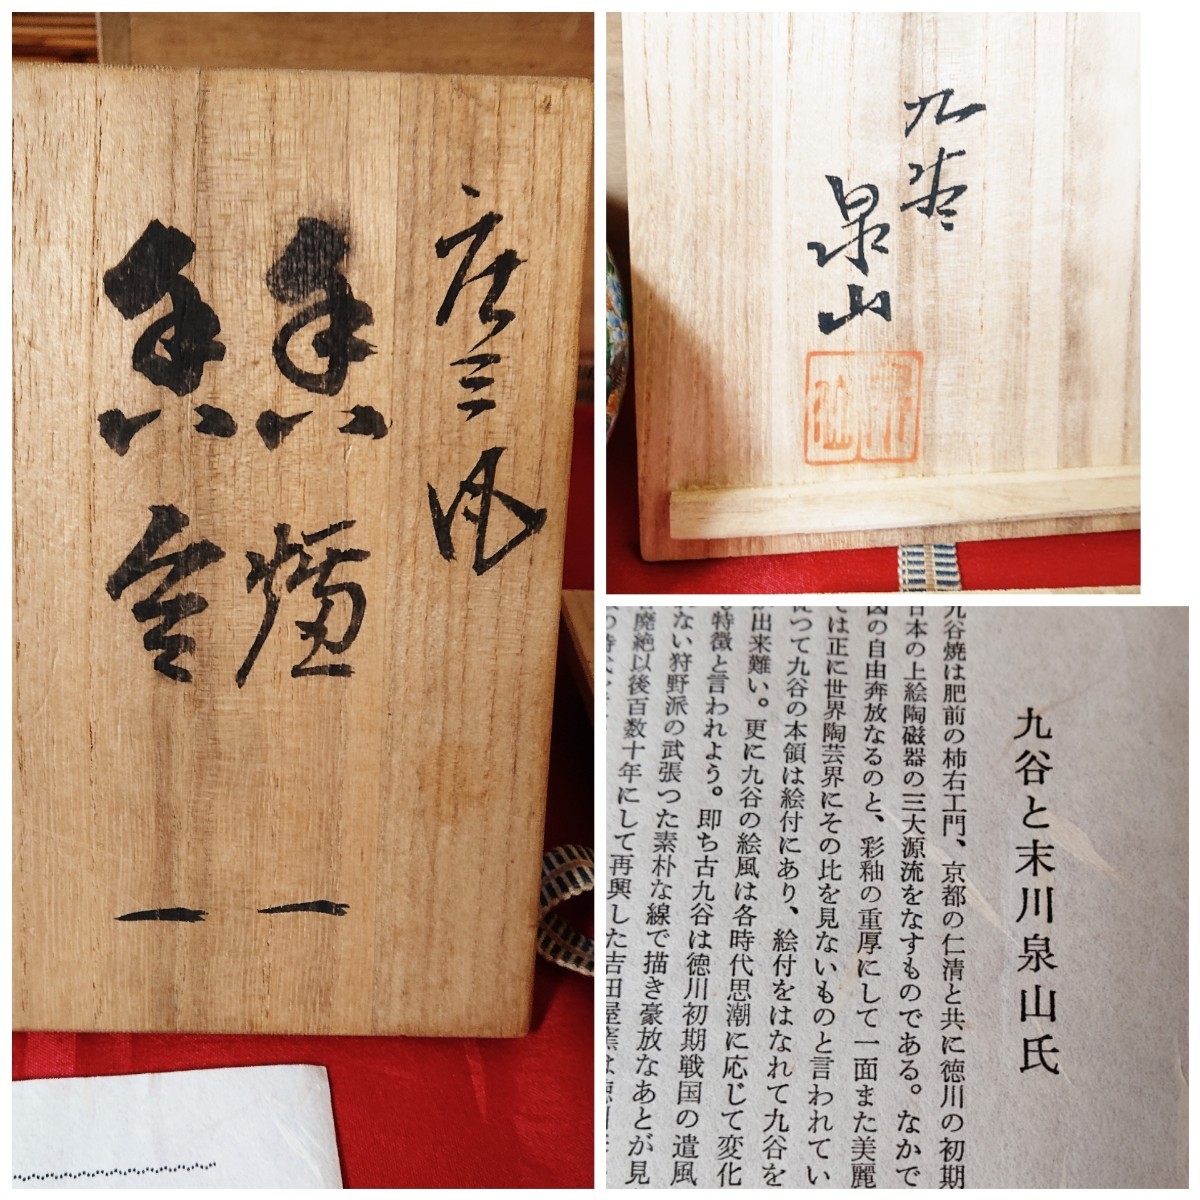 庄三風
香爐 一
香合 一
九谷
泉山
九谷と末川泉山氏
九谷焼は肥前の柿右エ門、京都の仁清と共に徳川の初期
日本の上絵陶磁器の三大源流をなすものである。なかで
図の自由奔放なるのと、彩釉の重厚にして一面また美麗
では正に世界陶芸界にその比を見ないものと言われてい
につて九谷の本領は絵付にあり、絵付をはなれて九谷を
出来難い。更に九谷の絵風は各時代思潮に応じて変化
も特徴と言われよう。即ち古九谷は徳川初期戦国の遺風
ない狩野派の武張つた素朴な線で描き豪放なあとが見
廃絶以後百数十年にして再興した吉田屋窯は